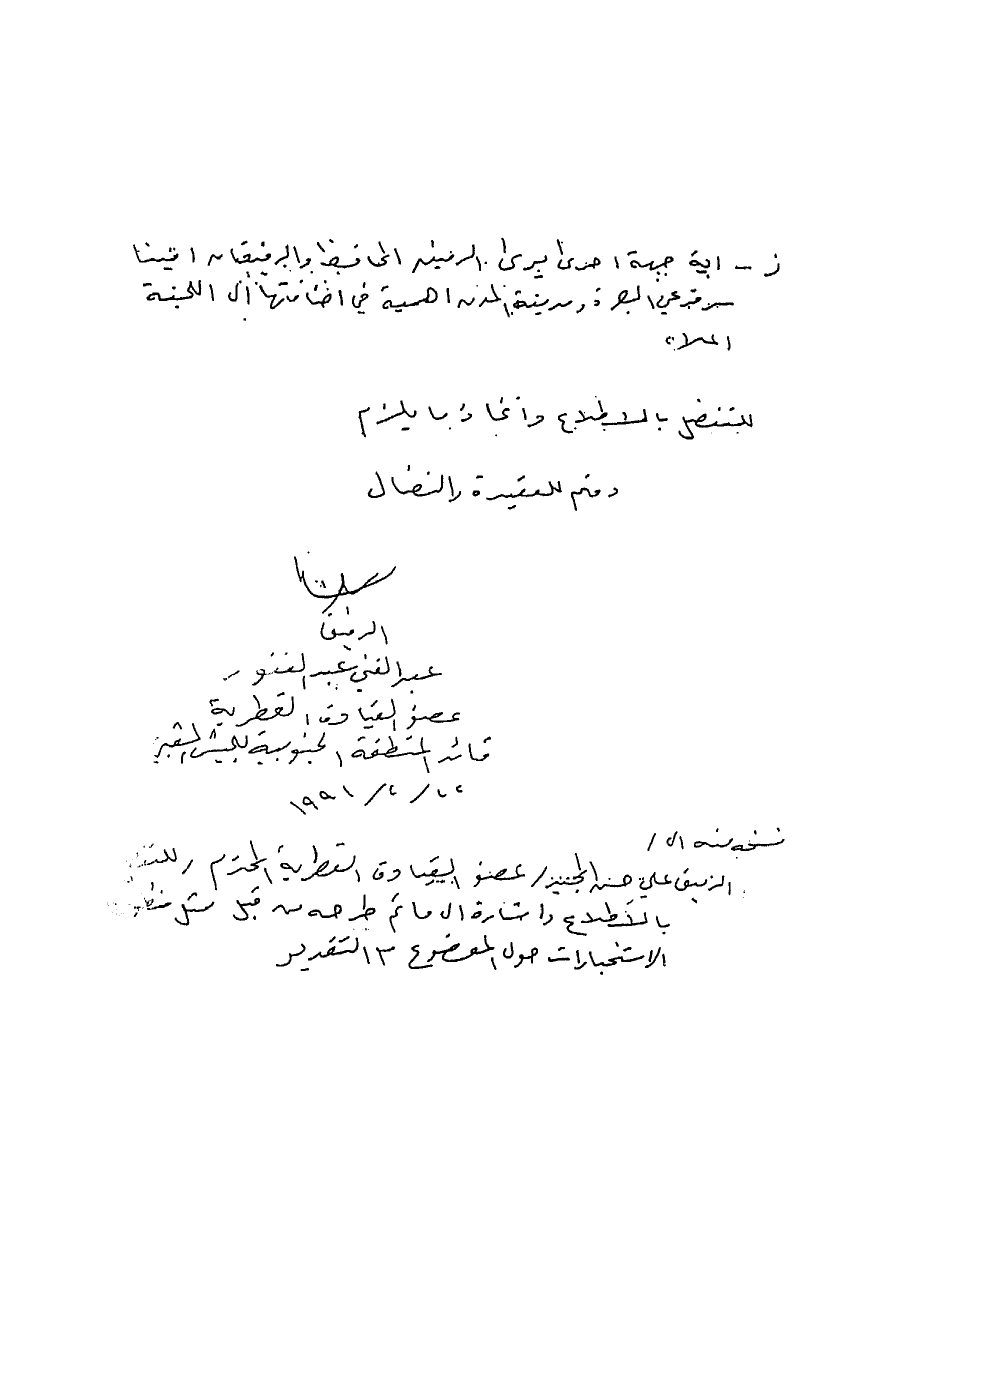 ز - اية جهة اخرى يرى الرفيق المحافظ والرفيقان امينا
سر فرعي البصرة ومدينة المدن اهمية في اضافتها الى اللجنة
اعلاه
للتفضل بالاطلاع واتخاذ ما يلزم
دمتم للعقيدة والنضال
الرفيق
عبد الغني عبد الغفور
عضو القيادة القطرية
قائد المنطقة الجنوبية للجيش الشعبي
١٩٩١ / ٢ / ٢٢
نسخه منه الى /
الرفيق علي حسن المجيد / عضو القيادة القطرية المحترم /
بالاطلاع واشارة الى ما تم طرحه من قبل ممثل
الاستخبارات حول الموضوع مع التقدير